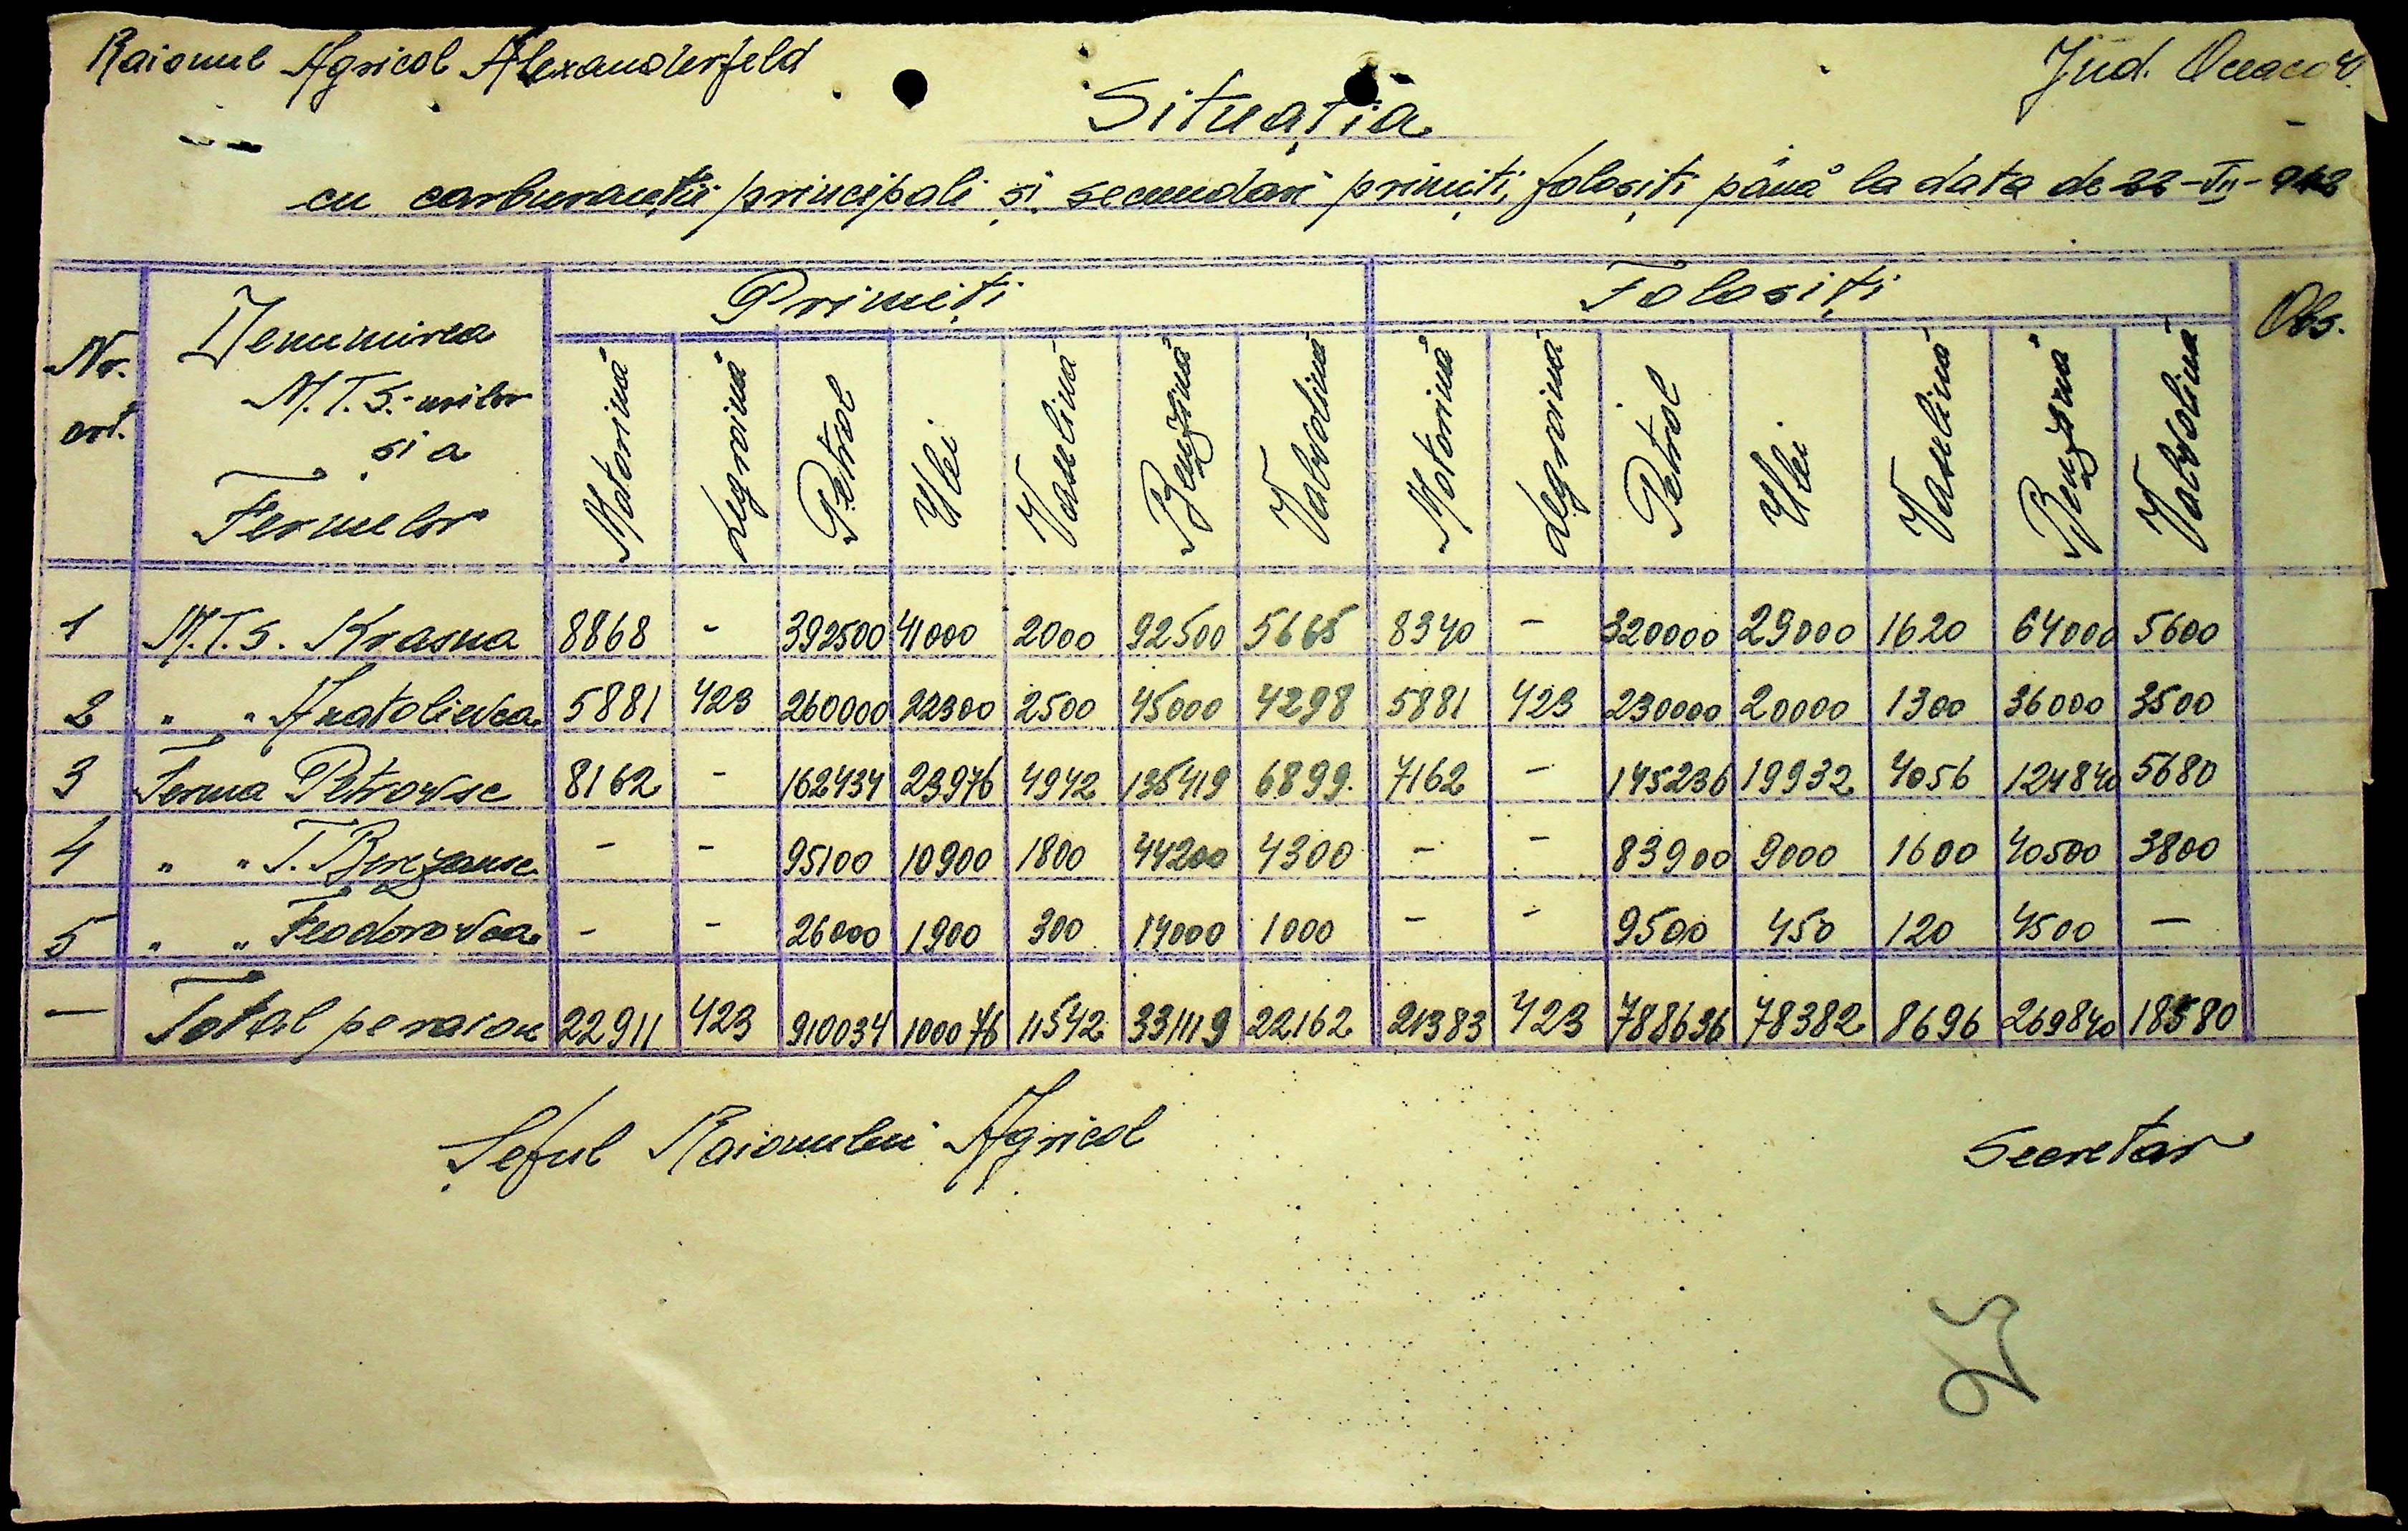 Raionul Agricol Alexanderfeld
Jud. Oceacov.
Situația
cu carburanții principali și secundari primiți, folosiți până la data de 22-XII-942
Nr. crt. | Denumirea M.T.S.-urilor și a Fermelor | Primiți | Folosiți | Obs.
Motorină | Legroină | Petrol | Ulei | Vaselină | Benzină | Valvolină | Motorină | Legroină | Petrol | Ulei | Vaselină | Benzină | Valvolină
1 | M.T.S. Krasna | 8868 | - | 392500 | 41000 | 2000 | 92500 | 5665 | 8340 | - | 320000 | 29000 | 1620 | 64000 | 5600
2 | " " Anatolievca | 5881 | 423 | 260000 | 22300 | 2500 | 45000 | 4298 | 5881 | 423 | 230000 | 20000 | 1300 | 36000 | 3500
3 | Ferma Petrovsc | 8162 | - | 162434 | 23976 | 4942 | 135419 | 6899. | 7162 | - | 145236 | 19932 | 4056 | 124840 | 5680
4 | " " T. Berezansc | - | - | 95100 | 10900 | 1800 | 44200 | 4300 | - | - | 83900 | 9000 | 1600 | 40500 | 3800
5 | " " Feodorovca | - | - | 26000 | 1900 | 300 | 14000 | 1000 | - | - | 9500 | 450 | 120 | 4500 | -
- | Total pe raion | 22911 | 423 | 910034 | 100076 | 11542 | 331119 | 22162 | 21383 | 423 | 788636 | 78382 | 8696 | 269840 | 18580
Șeful Raionului Agricol
Secretar